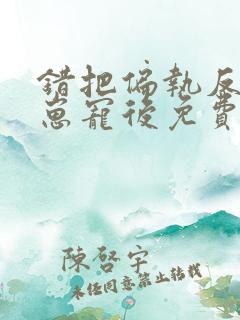 錯把偏執反
崽寵後免費
陳啓宇
未經同意禁止轉載